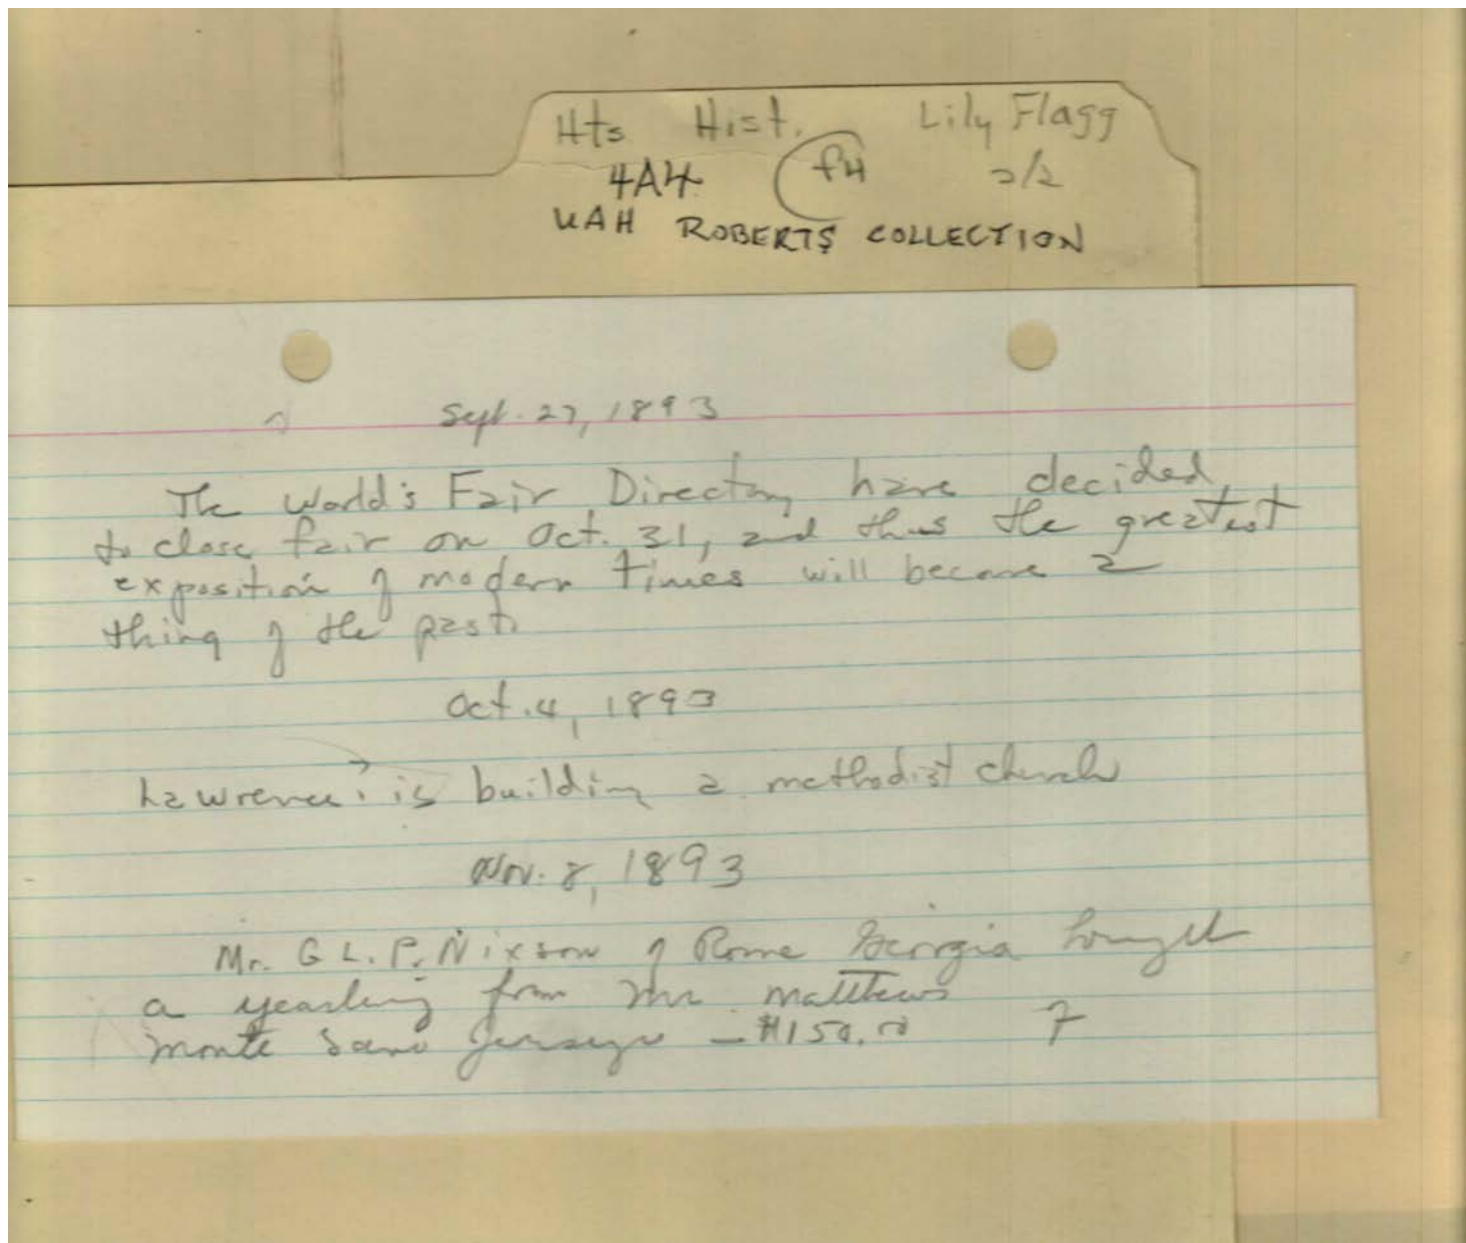 Hts Hist. Lily Flagg
4A4 f4 2/2
UAH ROBERTS COLLECTION
Sept. 27, 1893
The World's Fair Directory have decided
to close fair on Oct. 31, and thus the greatest
exposition of modern times will become a
thing of the past.
Oct. 4, 1893
Lawrence is building a methodist church
Nov. 8, 1893
Mr. G L. P. Nixson of Rome Georgia bought
a yearling from Mr Matthews
Monte Sano Jerseys — $150.00 7